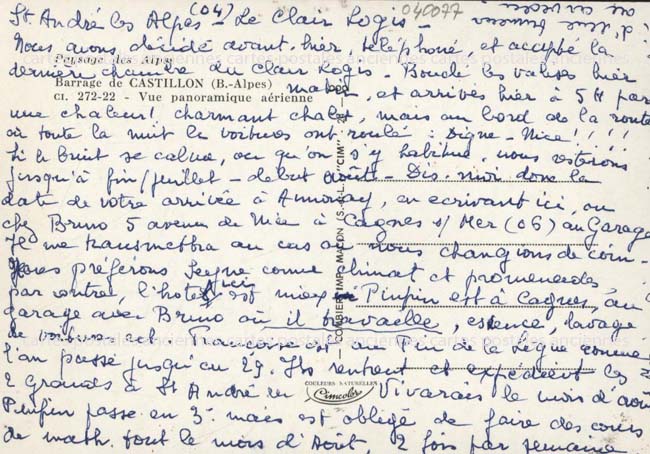 St André les Alpes (04) - Le Clair Logis -
Nous avons décidé avant-hier, téléphoné, et accepté la
dernière chambre du Clair Logis - Bouclé les valises hier
matin, et arrivés hier à 5H par
une chaleur! charmant chalet, mais au bord de la route
où toute la nuit les voitures ont roulé : Digne - Nice!!!!
Si le bruit se calme, ou qu'on s'y habitue, nous resterons
jusqu'à fin/juillet - début août - Dis-moi donc la
date de votre arrivée à Annonay, en écrivant ici, ou
chez Bruno 5 avenue de Nice à Cagnes s/Mer (06) au Garage
Il me transmettra au cas où nous changions de coin -
Nous préférons Seyne comme climat et promenades,
par contre, l'hotel ici est mieux - Pinpin est à Cagnes, au
garage avec Bruno où il travaille, essence, lavage
de voitures ect - Francoise est au Pin de la Lègue comme
l'an passé jusqu'au 29. Ils rentrent et expédient les
2 grands à St André en Vivarais le mois d'août
Pinpin passe en 3e mais est obligé de faire des cours
de math. tout le mois d'Août, 2 fois par semaine
040077
Paysage des Alpes
Barrage de CASTILLON (B.-Alpes)
CI. 272-22 - Vue panoramique aérienne
COMBIER IMP. MACON (S.-&-L.) "CIM"
COULEURS NATURELLES
Cimcolor
cartes postales anciennes